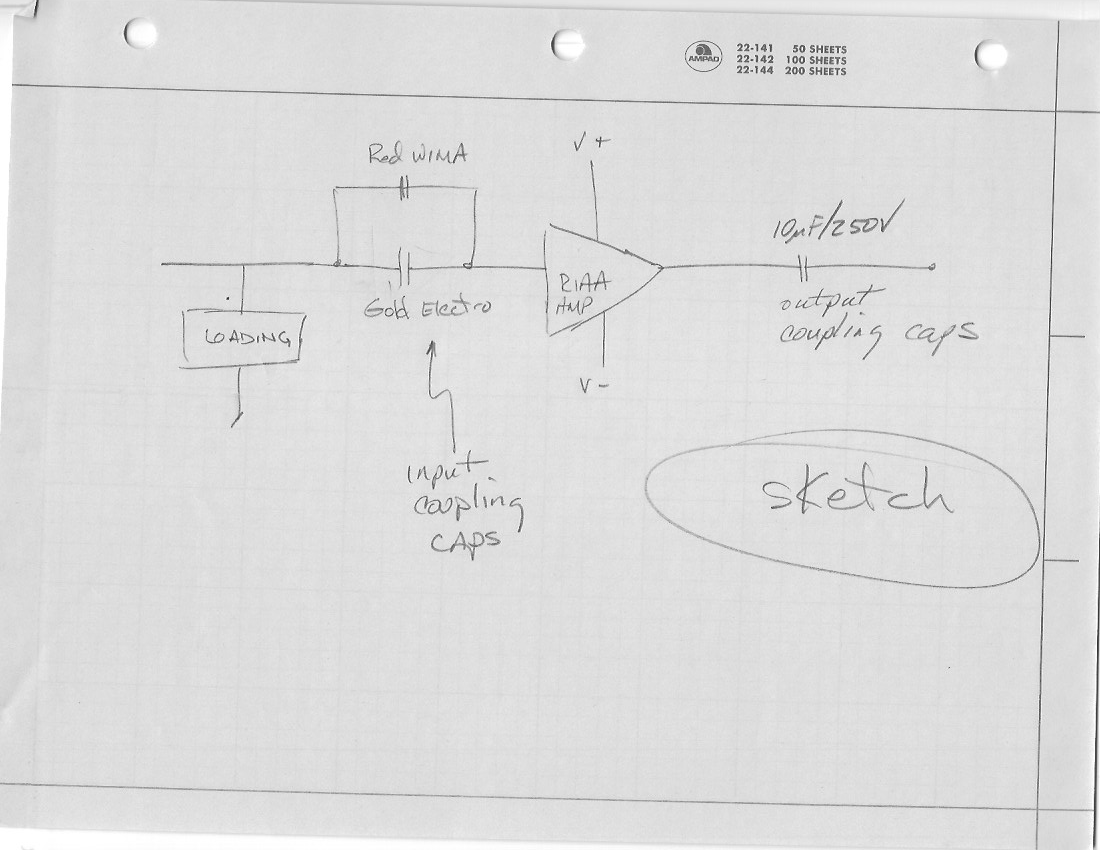 AMPAD
22-141 50 SHEETS
22-142 100 SHEETS
22-144 200 SHEETS
Red WIMA
V +
10µF/250V
Gold Electro
RIAA
AMP
LOADING
output
coupling caps
V -
input
coupling
CAPS
sketch